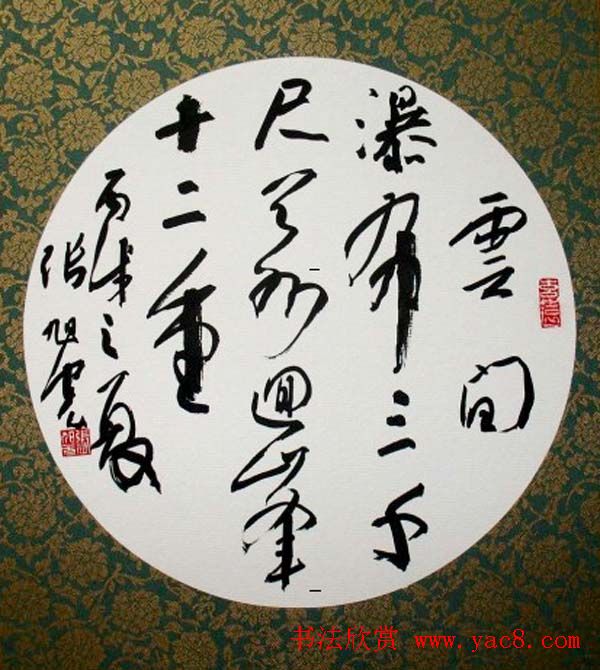 雲間
瀑布三千
尺天外迴峯
十二重
丙戌之夏
張旭光
书法欣赏 www.yac8.com